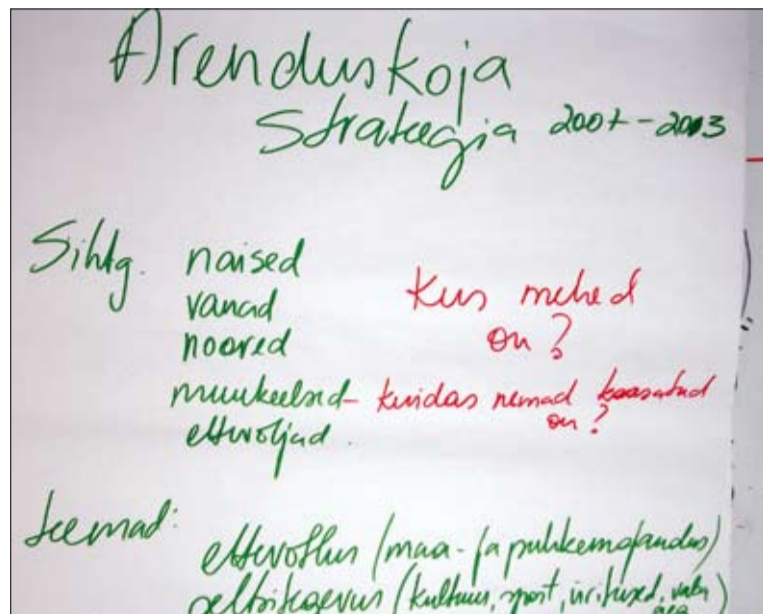 Arenduskoja
Strateegia 2007-2013
Sihtg. naised
vanad
noored
muukeelsed - kuidas nemad kaasatud on?
ettevõtjad
Kus mehed
on?
teemad:
ettevõtlus (maa- ja puhkemajandus)
seltsitegevus (kultuur, sport, üritused, vaba
aeg